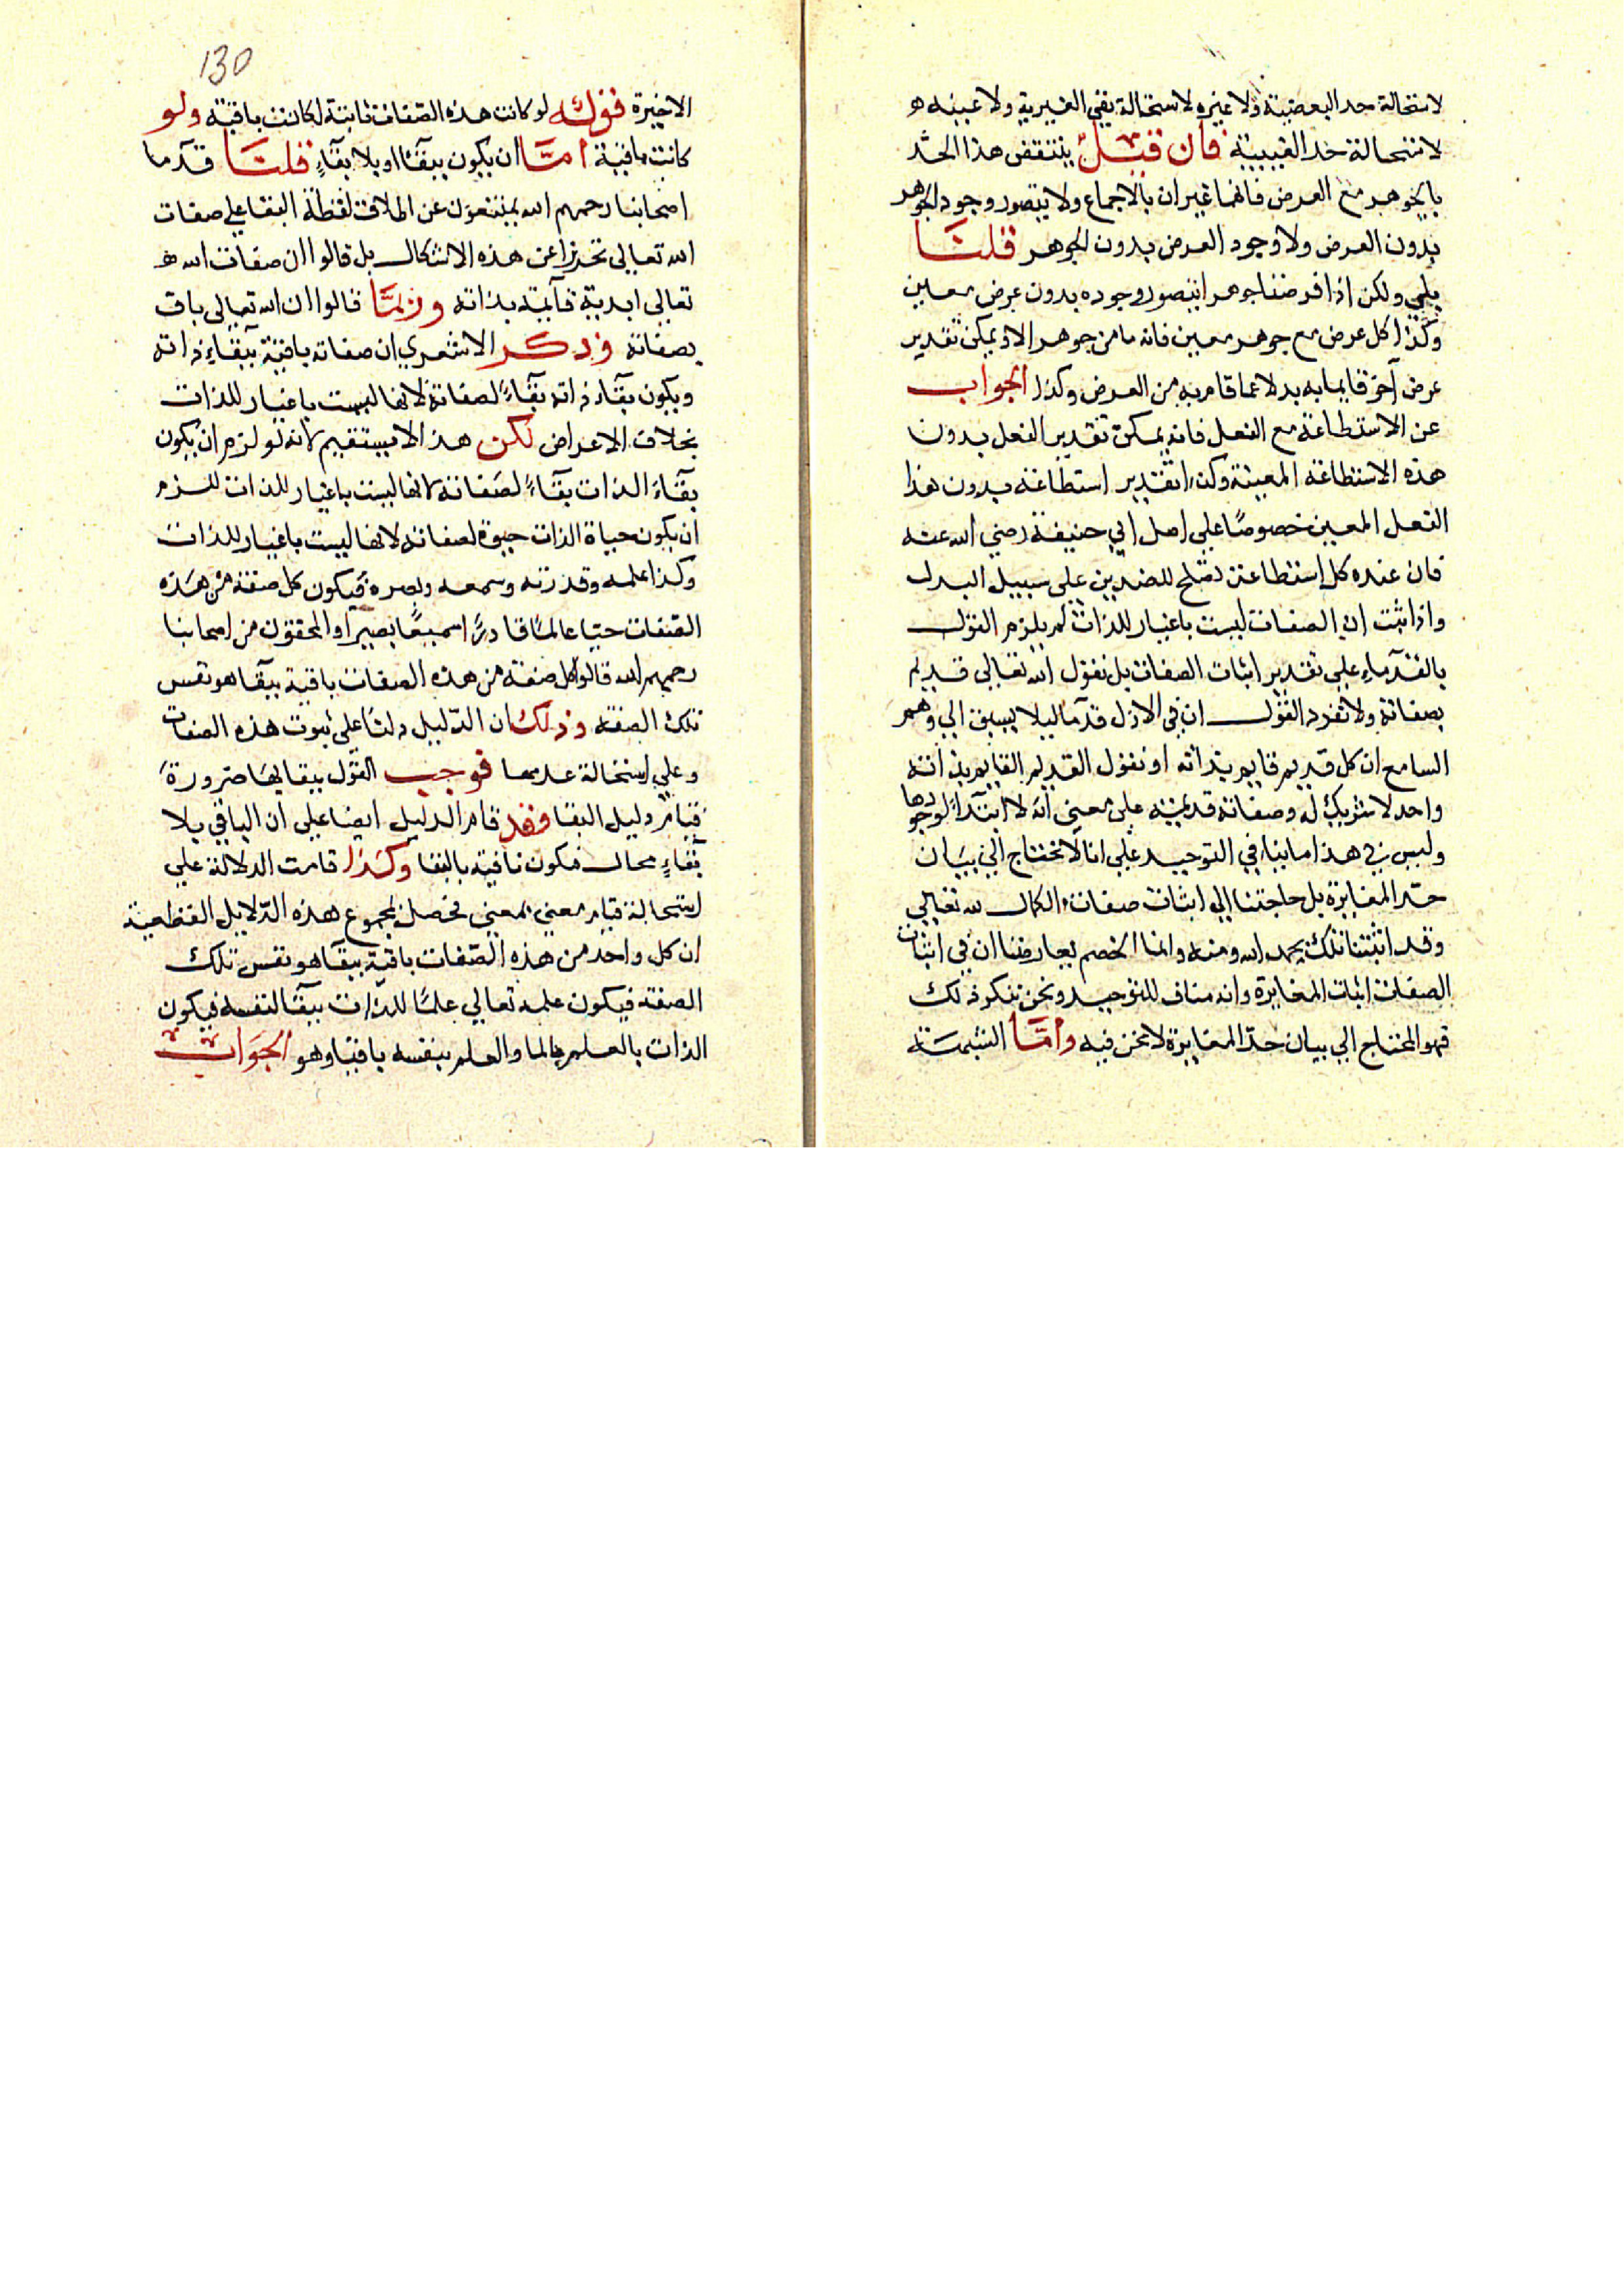 لاستحالة حد البعضية ولا غيره لاستحالة نفي الغيرية ولا عينه هو
لاستحالة حد الغيبية فان قيل ينتقض هذا الحد
بالجوهر مع العرض فانهما غيران بالاجماع ولا يتصور وجود الجوهر
بدون العرض ولا وجود العرض بدون الجوهر قلنا
بلي ولكن اذا فرضنا جوهرا يتصور وجوده بدون عرض معين
وكذا كل عرض مع جوهر معين فانه ما من جوهر الا ويمكن تقدير
عرض آخر قايما به بدلا عما قام به من العرض وكذا الجواب
عن الاستطاعة مع الفعل فانه يمكن تقدير الفعل بدون
هذه الاستطاعة المعينة وكذا تقدير استطاعة بدون هذا
الفعل المعين خصوصًا علي اصل ابي حنيفة رضي الله عنه
فان عنده كل استطاعة تصلح للضدين علي سبيل البدل
واذا ثبت ان الصفات ليست باغيار للذات لم يلزم القول
بالقدماء علي تقدير اثبات الصفات بل نقول الله تعالي قديم
بصفاته ولا نفرد القول ان في الازل قدما ليلا يسبق الي وهم
السامع ان كل قديم قايم بذاته او نقول القديم القايم بذاته
واحد لا شريك له وصفاته قديمة علي معني انه لا ابتدآ لوجودها
وليس في هذا ما ينافي التوحيد علي انا لا نحتاج الي بيان
حد المغايرة بل حاجتنا الي اثبات صفات الكمال لله تعالي
وقد اثبتنا تلك بحمد الله ومنه وانما الخصم يعارضنا ان في اثبات
الصفات اثبات المغايرة وانه مناف للتوحيد ونحن ننكر ذلك
فهو المحتاج الي بيان حد المغايرة لا نحن فيه واما الشبهة
130
الاخيرة فقوله لو كانت هذه الصفات ثابتة لكانت باقية ولو
كانت باقية امّا ان يكون ببقآء او بلا بقآءٍ قلنا قدما
اصحابنا رحمهم الله يمتنعون عن اطلاق لفظة البقا علي صفات
الله تعالي تحرزا عن هذه الاشكال بل قالوا ان صفات الله
تعالي ابدية قآيمة بذاته وربمّا قالوا ان الله تعالي باق
بصفاته وذكر الاشعري ان صفاته باقية ببقآء ذاته
ويكون بقآء ذاته بقآءً لصفاته لانها ليست باغيار للذات
بخلاف الاعراض لكن هذا لا يستقيم لانه لو لزم ان يكون
بقآء الذات بقآءً لصفاته لانها ليست باغيار للذات للزم
ان يكون حياة الذات حيوة لصفاته لانها ليست باغيار للذات
وكذا علمه وقدرته وسمعه وبصره فيكون كل صفة من هذه
الصفات حيّا عالمًا قادرًا سميعًا بصيرا والمحققون من اصحابنا
رحمهم الله قالوا كل صفة من هذه الصفات باقية ببقآ هو نفس
تلك الصفة وذلك ان الدّليل دلنا علي ثبوت هذه الصفات
وعلي استحالة عدمها فوجب القول ببقايها ضرورةً
قيام دليل البقا وقد قام الدليل ايضا علي ان الباقي بلا
بقاءٍ محال فيكون باقية بالبقا وكذا قامت الدلالة علي
استحالة قيام معني بمعني فحصل بمجموع هذه الدّلايل القطعية
ان كل واحد من هذه الصّفات باقية ببقآ هو نفس تلك
الصفة فيكون علمه تعالي علمًا للذات ببقآ لنفسه فيكون
الذات بالعلم عالما والعلم بنفسه باقيا وهو الجواب